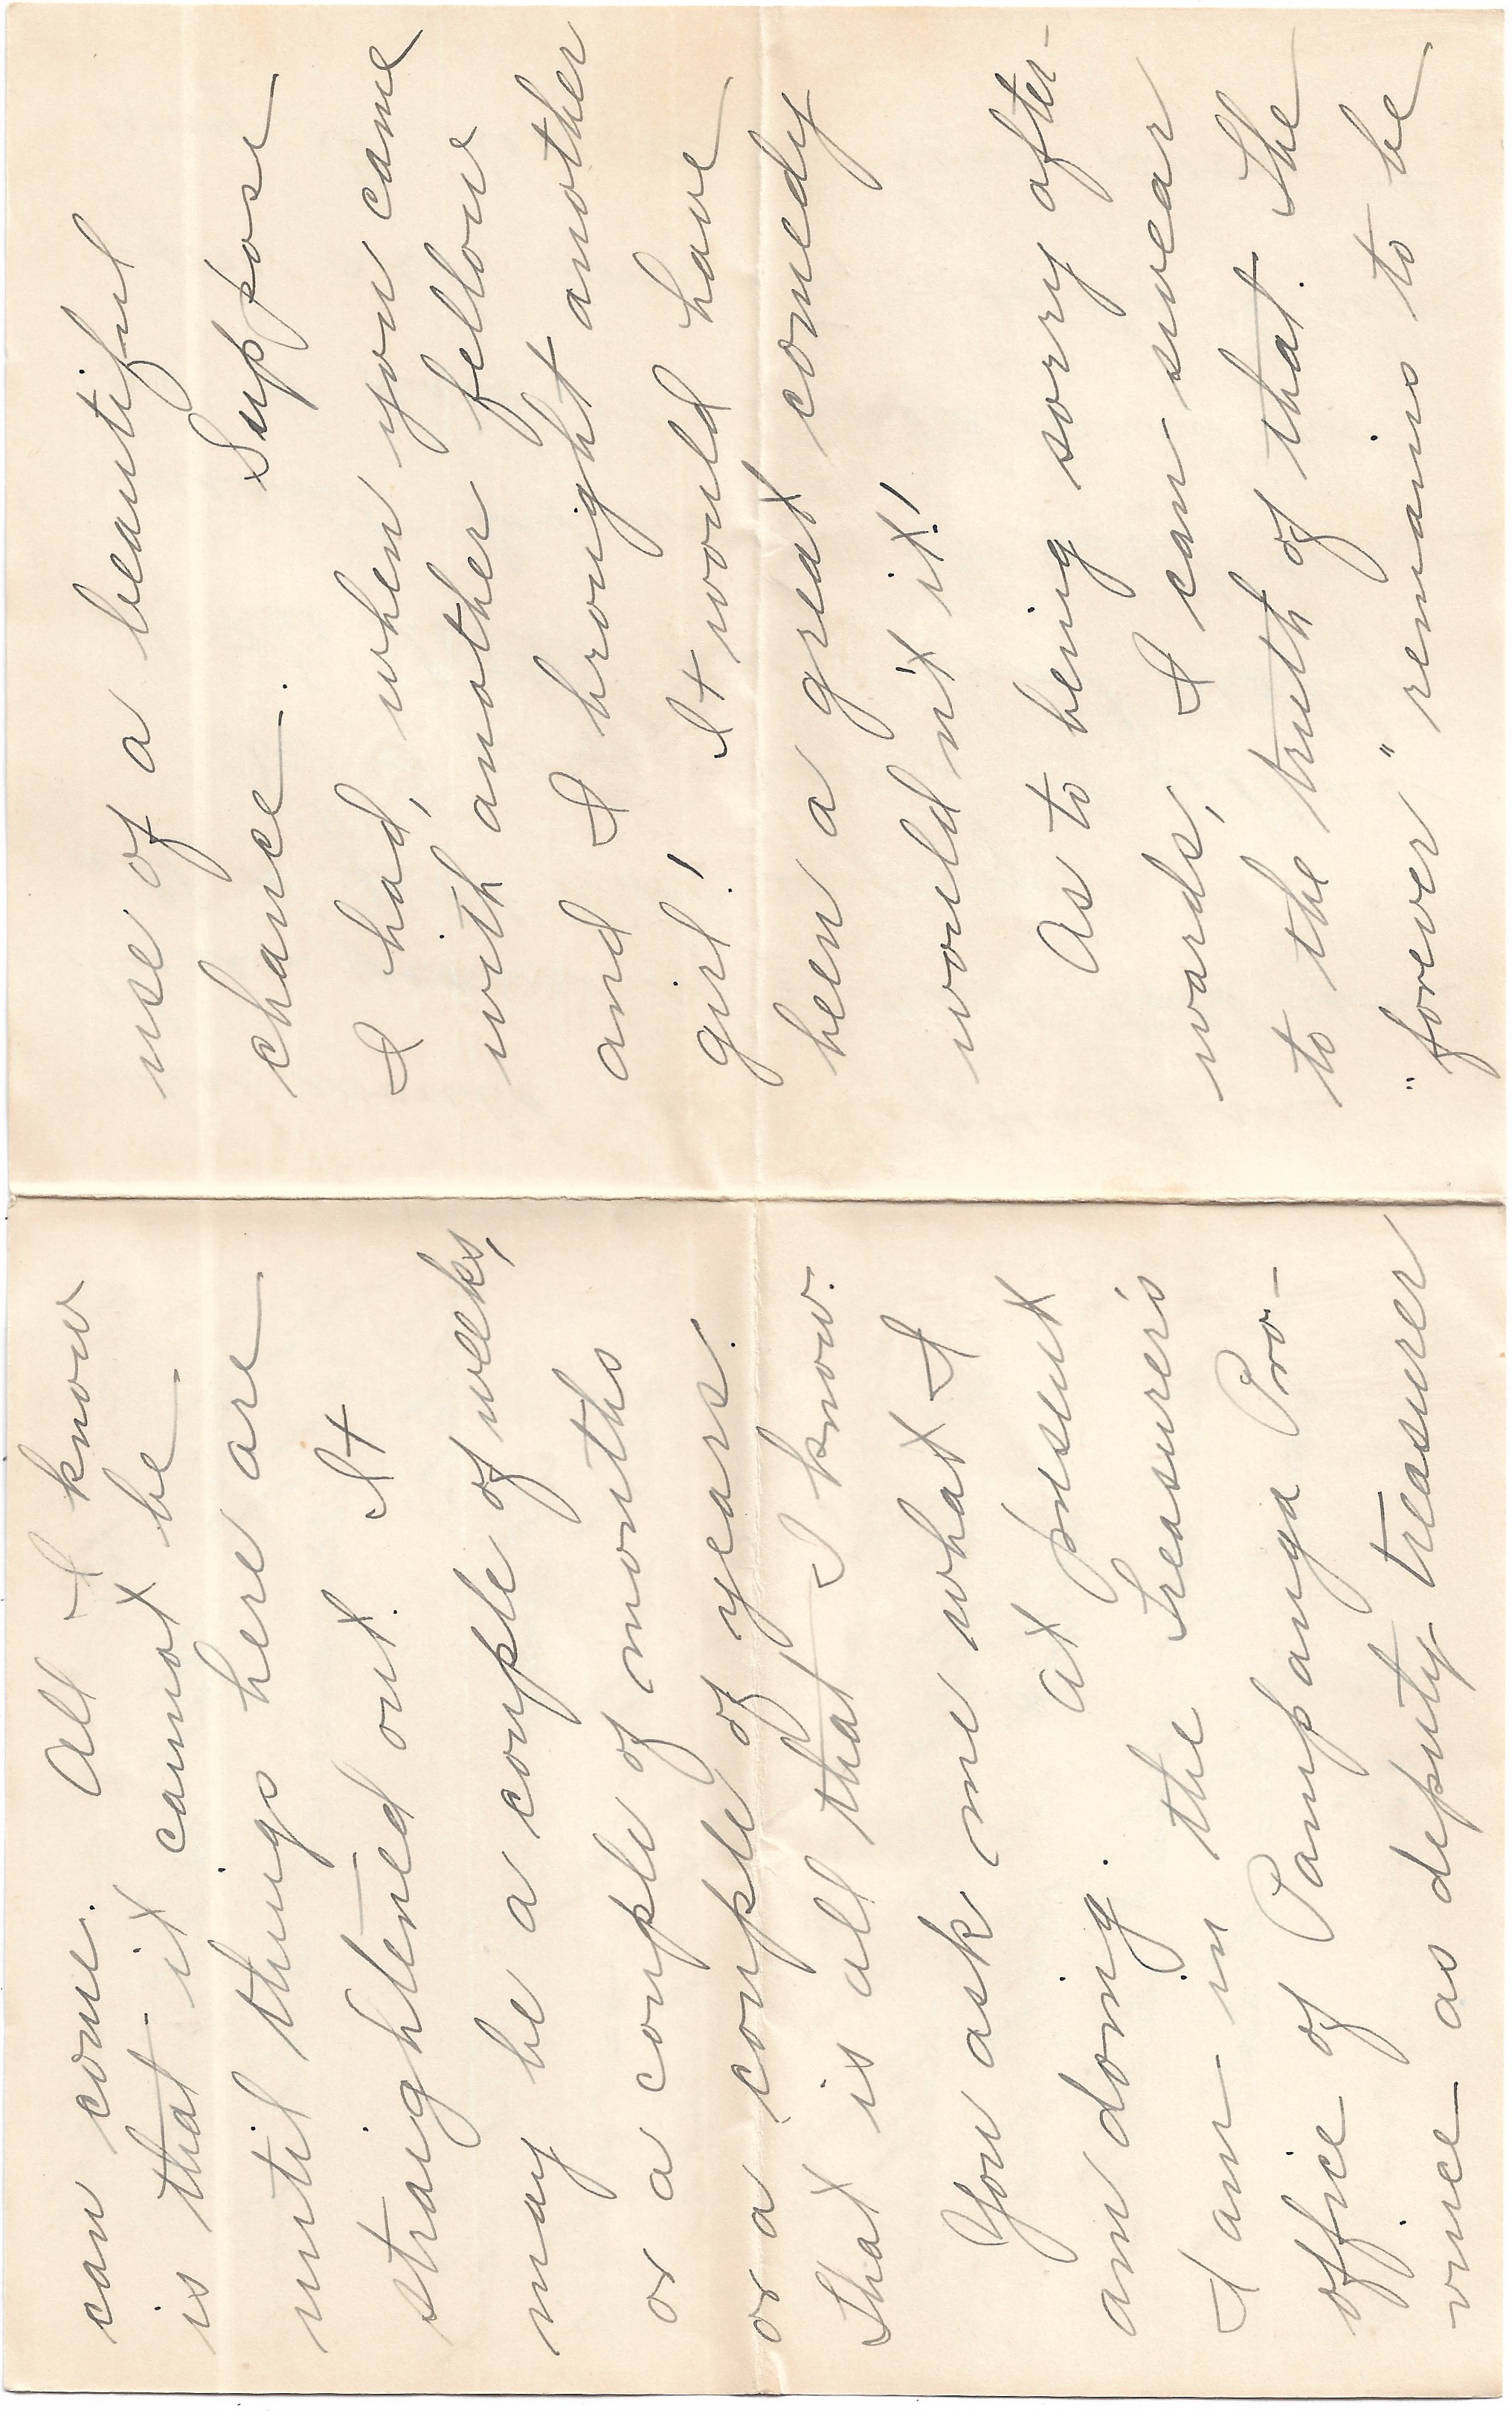 can come. All I know
is that it cannot be
until things here are
straightened out. It
may be a couple of weeks,
or a couple of months
or a couple of years.
That is all that I know.
You ask me what I
am doing. At present
I am in the Treasurer's
office of Pampanga Pro-
vince as deputy treasurer
use of a beautiful
chance. Suppose
I had, when you came
with another fellow
and I brought another
girl! It would have
been a great comedy
wouldn't it!
As to being sorry after-
wards, I can swear
to the truth of that. The
"forever" remains to be